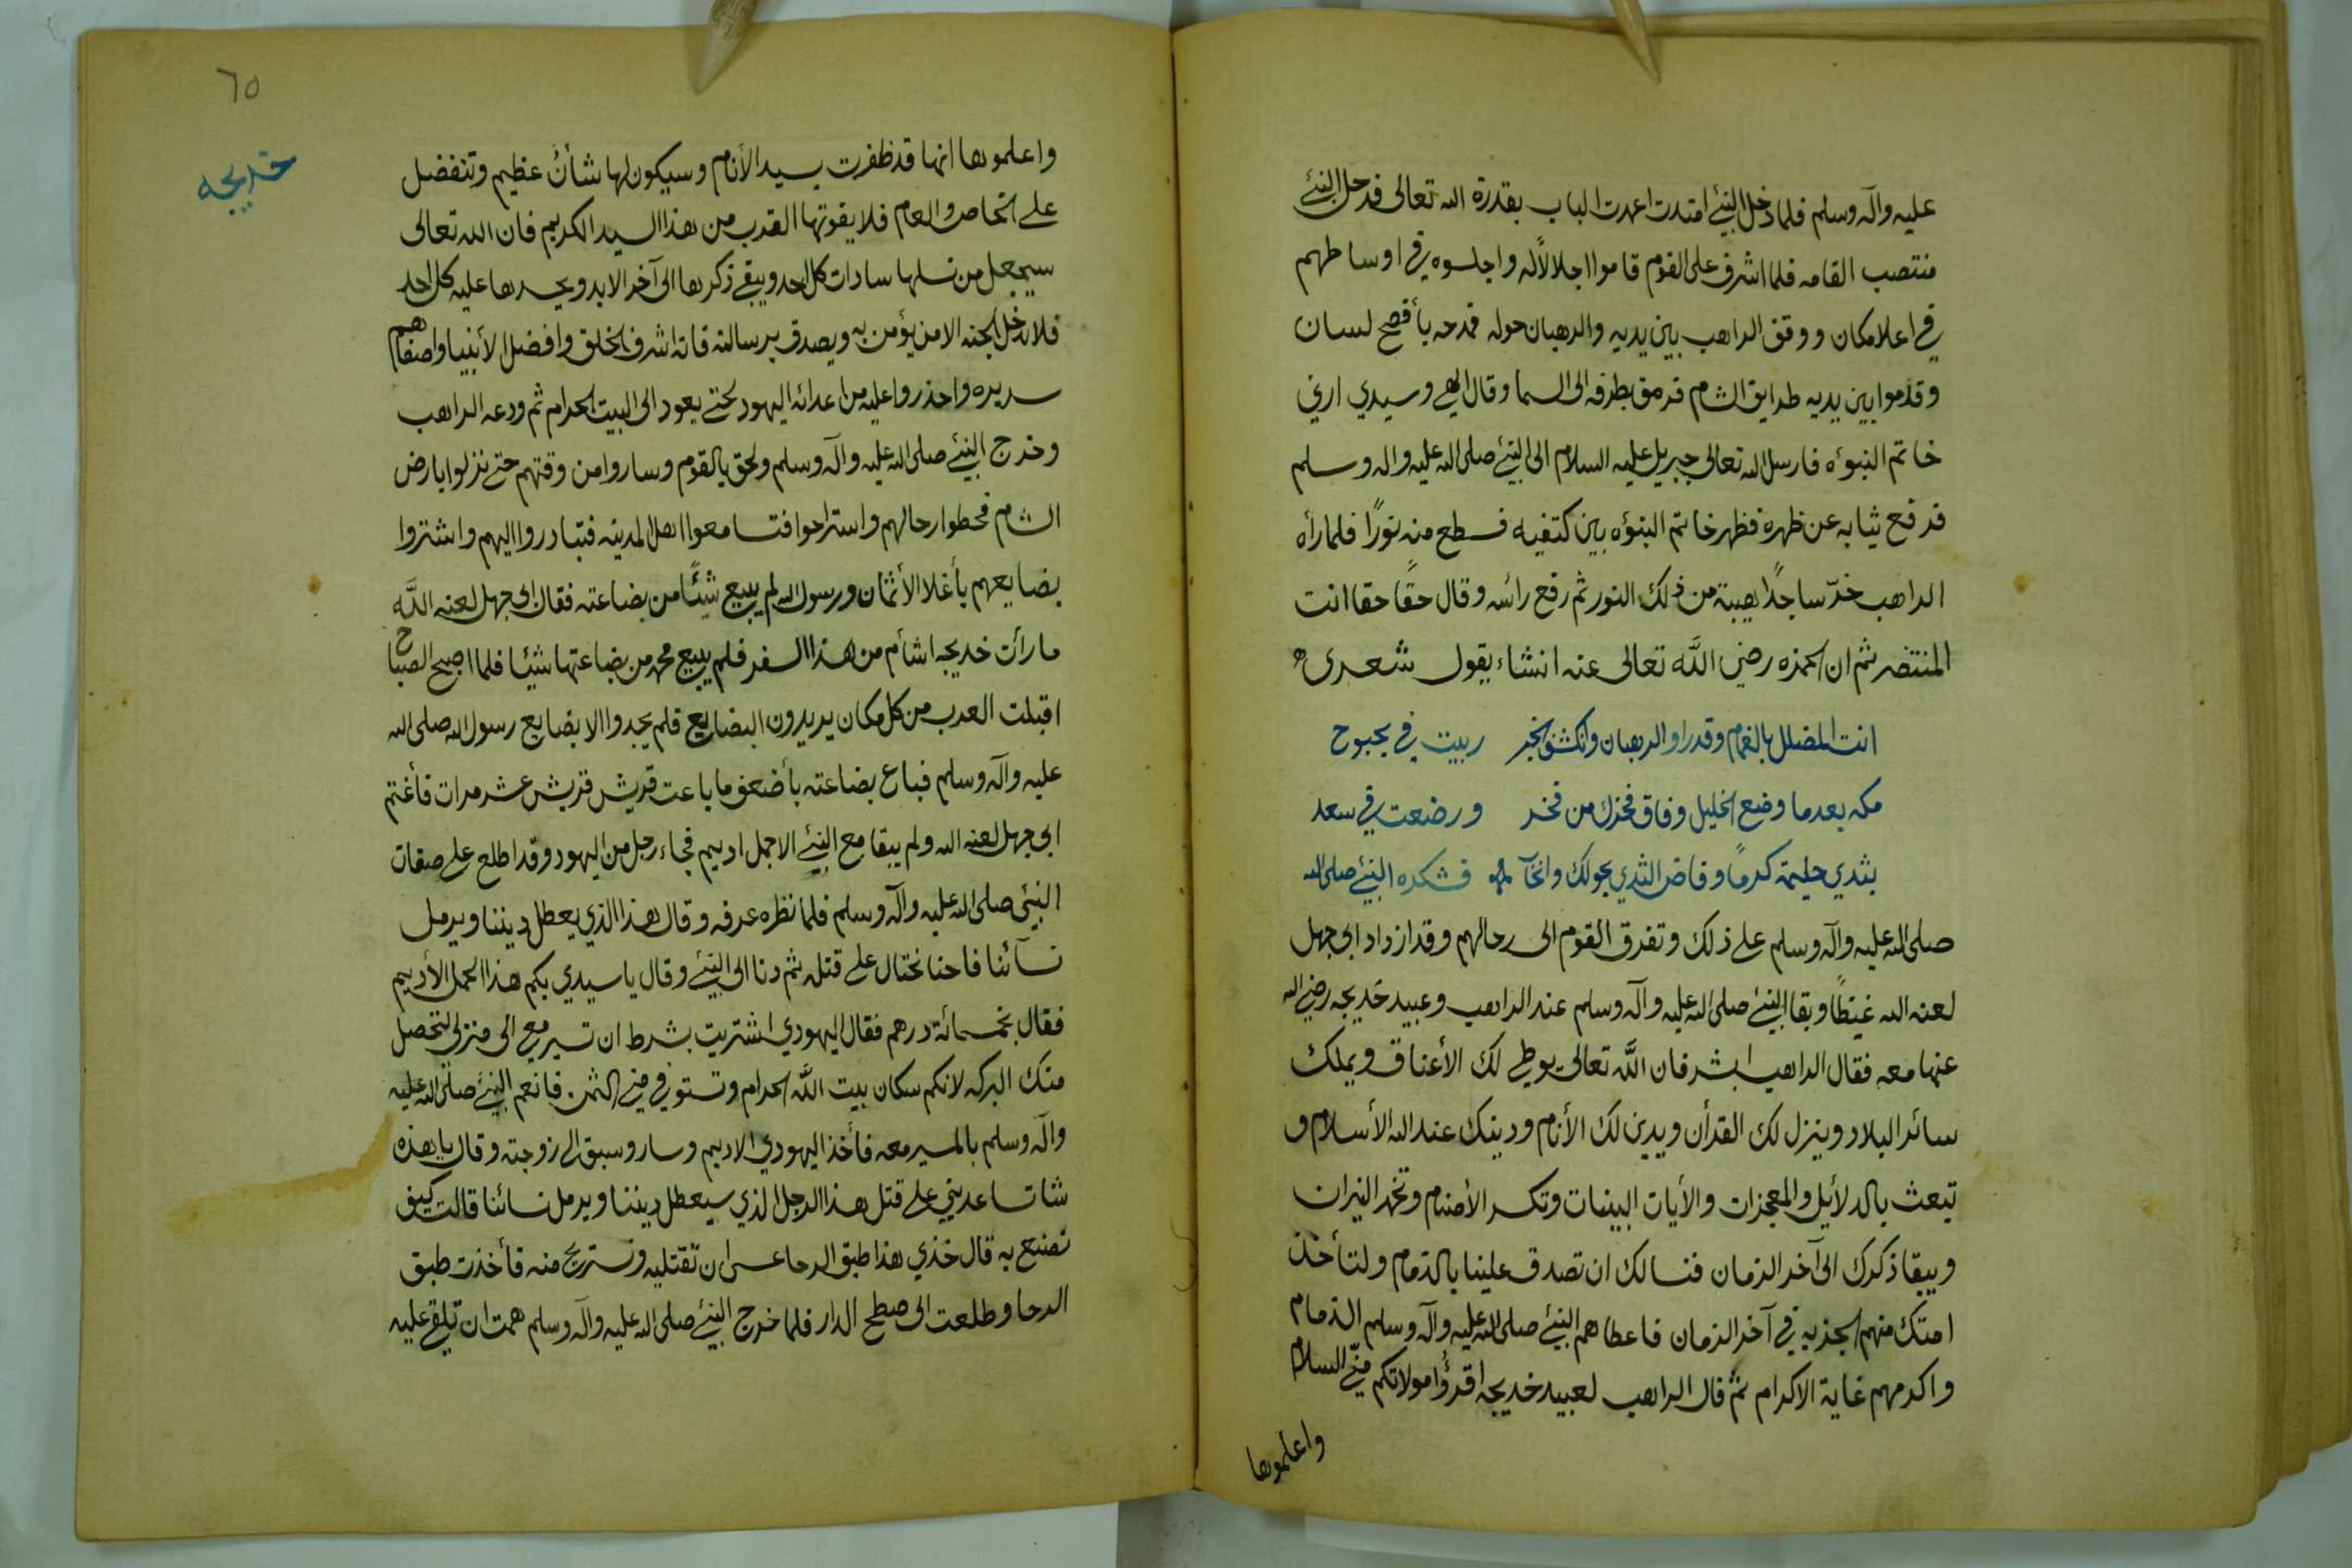 عليه وآله وسلم فلما دخل النبي امتدت اعمدت الباب بقدرة الله تعالى فدخل النبي
منتصب القامه فلما اشرف على القوم قاموا اجلالاً له واجلسوه في اوساطهم
في اعلا مكان ووقف الراهب بين يديه والرهبان حوله فمدحه بأفصح لسان
وقدموا بين يديه طرايق الشام فرمق بطرفه الى السما وقال الهي وسيدي ارني
خاتم النبوه فارسل الله تعالى جبريل عليه السلام الى النبي صلى الله عليه واله وسلم
فرفع ثيابه عن ظهره فظهر خاتم النبوه بين كتفيه فسطع منه نورًا فلما رأه
الراهب خرّ ساجدًا هيبة من ذلك النور ثم رفع رائسه وقال حقًا حقا انت
المنتضر ثم ان الحمزه رضي الله تعالى عنه انشاء يقول شعرى
انت المضلل بالغمام وقد راو الرهبان وانكشف الخبر ربيت في بحبوح
مكه بعدما وضع الخليل وفاق فخرك من فخر ورضعت في سعد
بثدي حليمة كرمًا وفاض الثدي نحولك وانحآ فشكره النبي صلى الله
صلى الله عليه وآله وسلم على ذلك وتفرق القوم الى رحالهم وقد ازداد ابي جهل
لعنه الله غيظًا وبقا النبي صلى الله عليه وآله وسلم عند الراهب وعبيد خديجه رضي الله
عنها معه فقال الراهب ابشر فان الله تعالى يوطي لك الأعناق ويملك
سائر البلاد وينزل لك القرأن ويدين لك الأنام ودينك عند الله الأسلام و
تبعث بالدلأيل والمعجزات والأيات البينات وتكسر الأصنام وتخمد النيران
ويبقا ذكرك الى آخر الزمان فنسالك ان تصدق علينا بالذمام ولتأخذ
امتك منهم الجزيه في آخر الزمان فاعطاهم النبي صلى الله عليه وآله وسلم الذمام
واكرمهم غاية الاكرام ثم قال الراهب لعبيد خديجه اقرؤا مولاتكم منّي السلام
واعلموها
٦٥
خديجه
واعلموها انها قد ظفرت بسيد الأنام وسيكون لها شأن عظيم وتتفضل
على الخاص والعام فلا يفوتها القرب من هذا السيد الكريم فان الله تعالى
سيجعل من نسلها سادات كل احد ويبقى ذكرها الى آخر الابد ويحسدها عليه كل احد
فلا يدخل الجنه الا من يؤمن به ويصدق برسالته فانه اشرف الخلق وافضل الأنبيا واصفاهم
سريره واحذروا عليه من اعدائه اليهود لحتى يعود الى البيت الحرام ثم ودعه الراهب
وخرج النبي صلى الله عليه وآله وسلم ولحق بالقوم وساروا من وقتهم حتى نزلوا بارض
الشام فحطوا رحالهم واستراحوا فتسامعوا اهل المدينه فتبادروا اليهم واشتروا
بضايعهم بأغلا الأثمان ورسول الله لم يبيع شيئًا من بضاعته فقال ابي جهل لعنه الله
ما رأت خديجه اشأم من هذا السفر فلم يبيع محمد من بضاعتها شيئا فلما اصبح الصباح
اقبلت العرب من كل مكان يريدون البضايع فلم يجدوا الا بضايع رسول الله صلى الله
عليه وآله وسلم فباع بضاعته بأضعف ما باعت قريش قريش عشر مرات فأغتم
ابي جهل لعنه الله ولم يبقا مع النبي الا حمل اديم فجاء رجل من اليهود وقد اطلع على صفات
النبي صلى الله عليه وآله وسلم فلما نظره عرفه وقال هذا الذي يعطل ديننا ويرمل
نسآئنا فاحنا نحتال على قتله ثم دنا الى النبي وقال يا سيدي بكم هذا الحمل الأديم
فقال بخمسمائة درهم فقال اليهودي اشتريت بشرط ان تسير معي الى منزلي لتحصل
منك البركه لانكم سكان بيت الله الحرام وتستوفي مني الثمن فانعم النبي صلى الله عليه
وآله وسلم بالمسير معه فأخذ اليهودي الاديم وسار وسبق الى زوجته وقال يا هذه
شاتساعديني على قتل هذا الرجل الذي سيعطل ديننا ويرمل نسائنا قالت كيف
تصنع به قال خذي هذا طبق الرحا عسى ان تقتليه ونستريح منه فأخذت طبق
الرحا وطلعت الى صطح الدار فلما خرج النبي صلى الله عليه وآله وسلم همت ان تلقي عليه